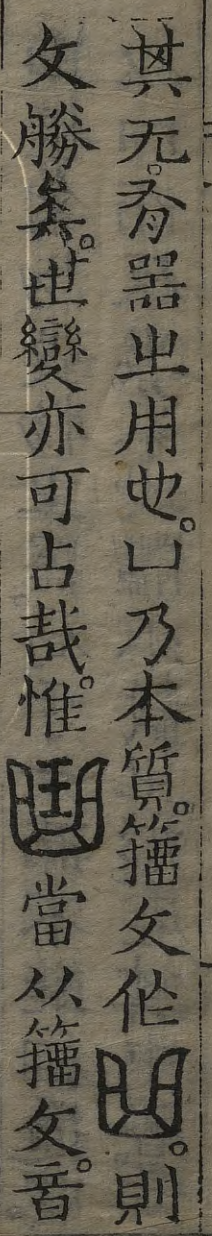 其无。有器㞢用也。凵乃本質。籒文作。則
文勝矣。世變亦可占哉。惟當从籒文。音